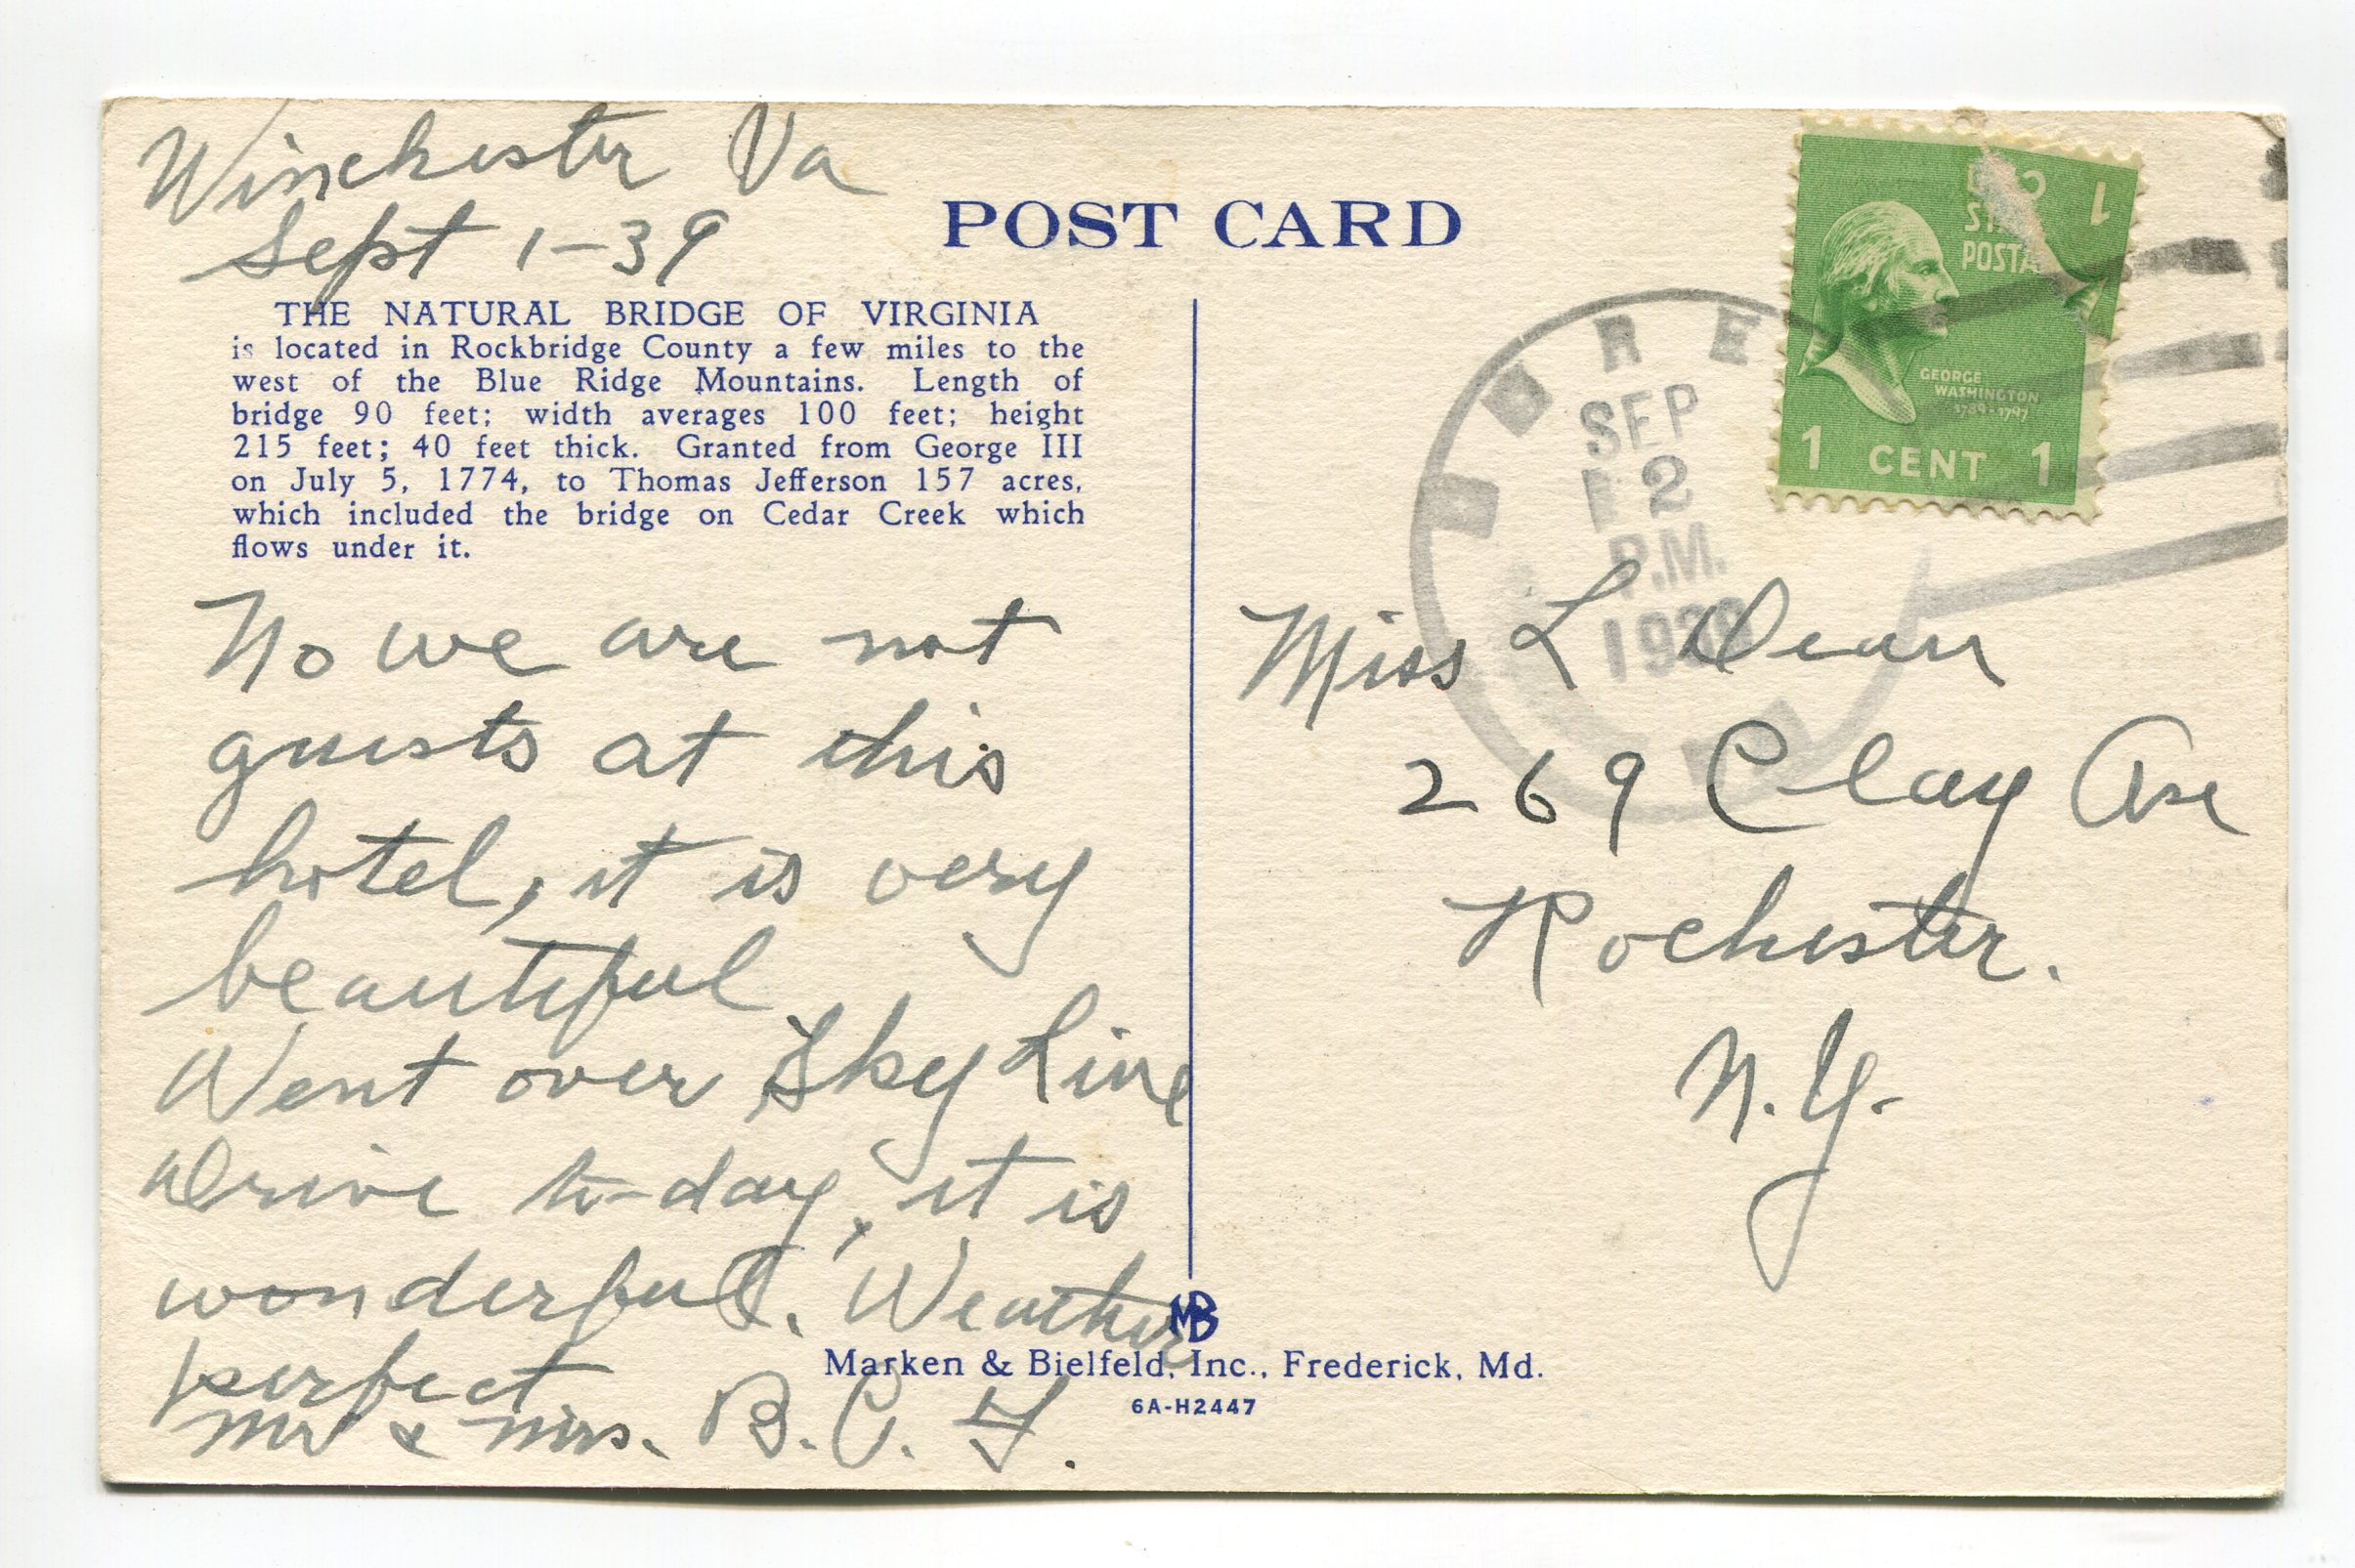 Winchester Va
Sept 1-39
POST CARD
THE NATURAL BRIDGE OF VIRGINIA
is located in Rockbridge County a few miles to the
west of the Blue Ridge Mountains. Length of
bridge 90 feet; width averages 100 feet; height
215 feet; 40 feet thick. Granted from George III
on July 5, 1774, to Thomas Jefferson 157 acres,
which included the bridge on Cedar Creek which
flows under it.
No we are not
guests at this
hotel, it is very
beautiful
Went over Sky Line
Drive to-day, it is
wonderful. Weather
perfect
Mr & Mrs. B. C. F.
SEP
2
P.M.
GEORGE
WASHINGTON
1789-1797
1 CENT 1
Miss L Dean
269 Clay Ave
Rochester.
N.Y.
MB
Marken & Bielfeld, Inc., Frederick, Md.
6A-H2447